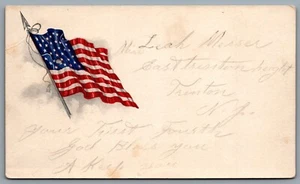 Miss Leah Messer
Trenton
N.J.
Your First Fourth
God Bless you
& Keep you